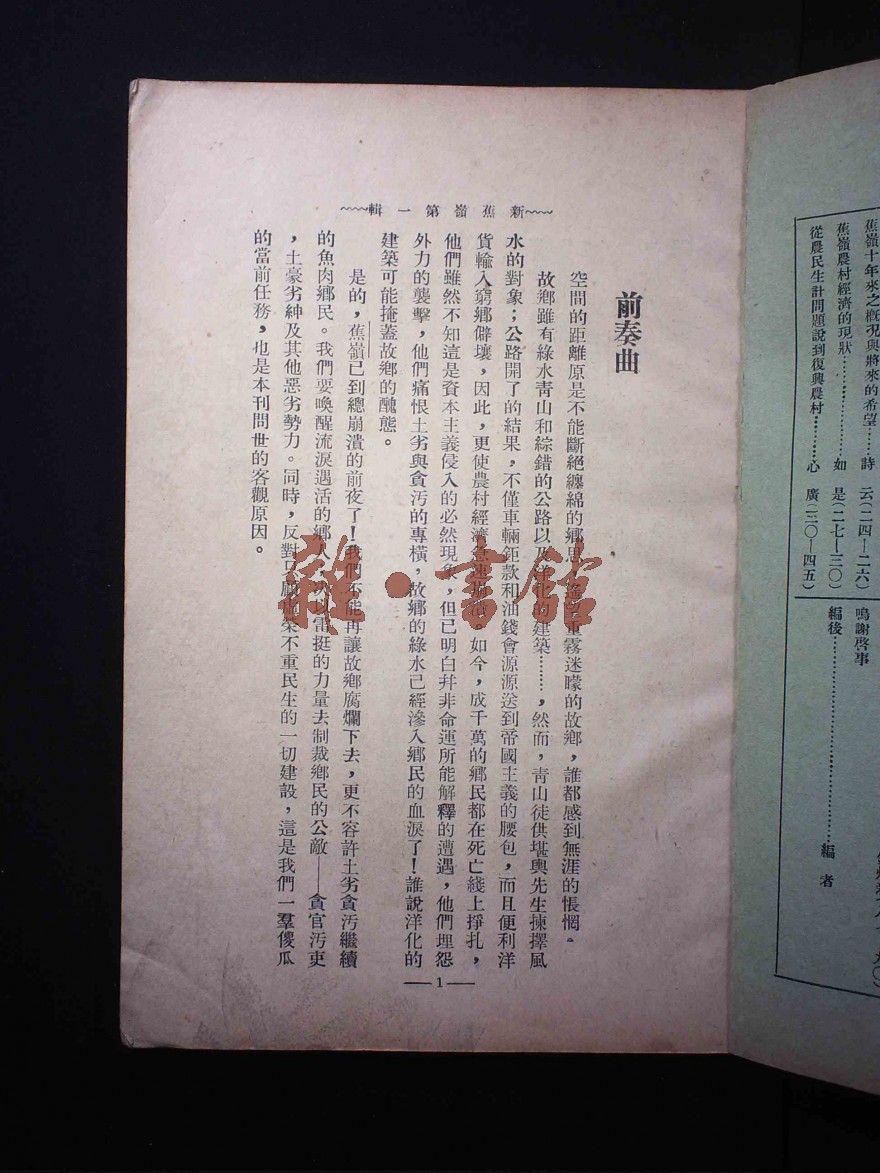 蕉嶺十年來之概況與將來的希望……詩 云(二四—二六)
蕉嶺農村經濟的現狀……如 是(二七—三〇)
從農民生計問題說到復興農村……心 廣(三〇—四五)
鳴謝啓事
編後……編 者
新蕉嶺第一輯
前奏曲
空間的距離原是不能斷絕纏綿的鄉思，遙望重霧迷曚的故鄉，誰都感到無涯的悵惘。
故鄉雖有綠水青山和綜錯的公路以及洋化的建築………，然而，青山徒供堪輿先生揀擇風
水的對象；公路開了的結果，不僅車輛鉅款和油錢會源源送到帝國主義的腰包，而且便利洋
貨輸入窮鄉僻壤，因此，更使農村經濟急速崩潰。如今，成千萬的鄉民都在死亡綫上掙扎，
他們雖然不知這是資本主義侵入的必然現象，但已明白幷非命運所能解釋的遭遇，他們埋怨
外力的襲擊，他們痛恨土劣與貪汚的專橫，故鄉的綠水已經滲入鄉民的血淚了！誰說洋化的
建築可能掩蓋故鄉的醜態。
是的，蕉嶺已到總崩潰的前夜了！我們不能再讓故鄉腐爛下去，更不容許土劣貪汚繼續
的魚肉鄉民。我們要喚醒流淚過活的鄉人，以雷挺的力量去制裁鄉民的公敵——貪官汚吏
，土豪劣紳及其他惡劣勢力。同時，反對只顧虛榮不重民生的一切建設，這是我們一羣傻瓜
的當前任務，也是本刊問世的客觀原因。
—1—
雜·書館